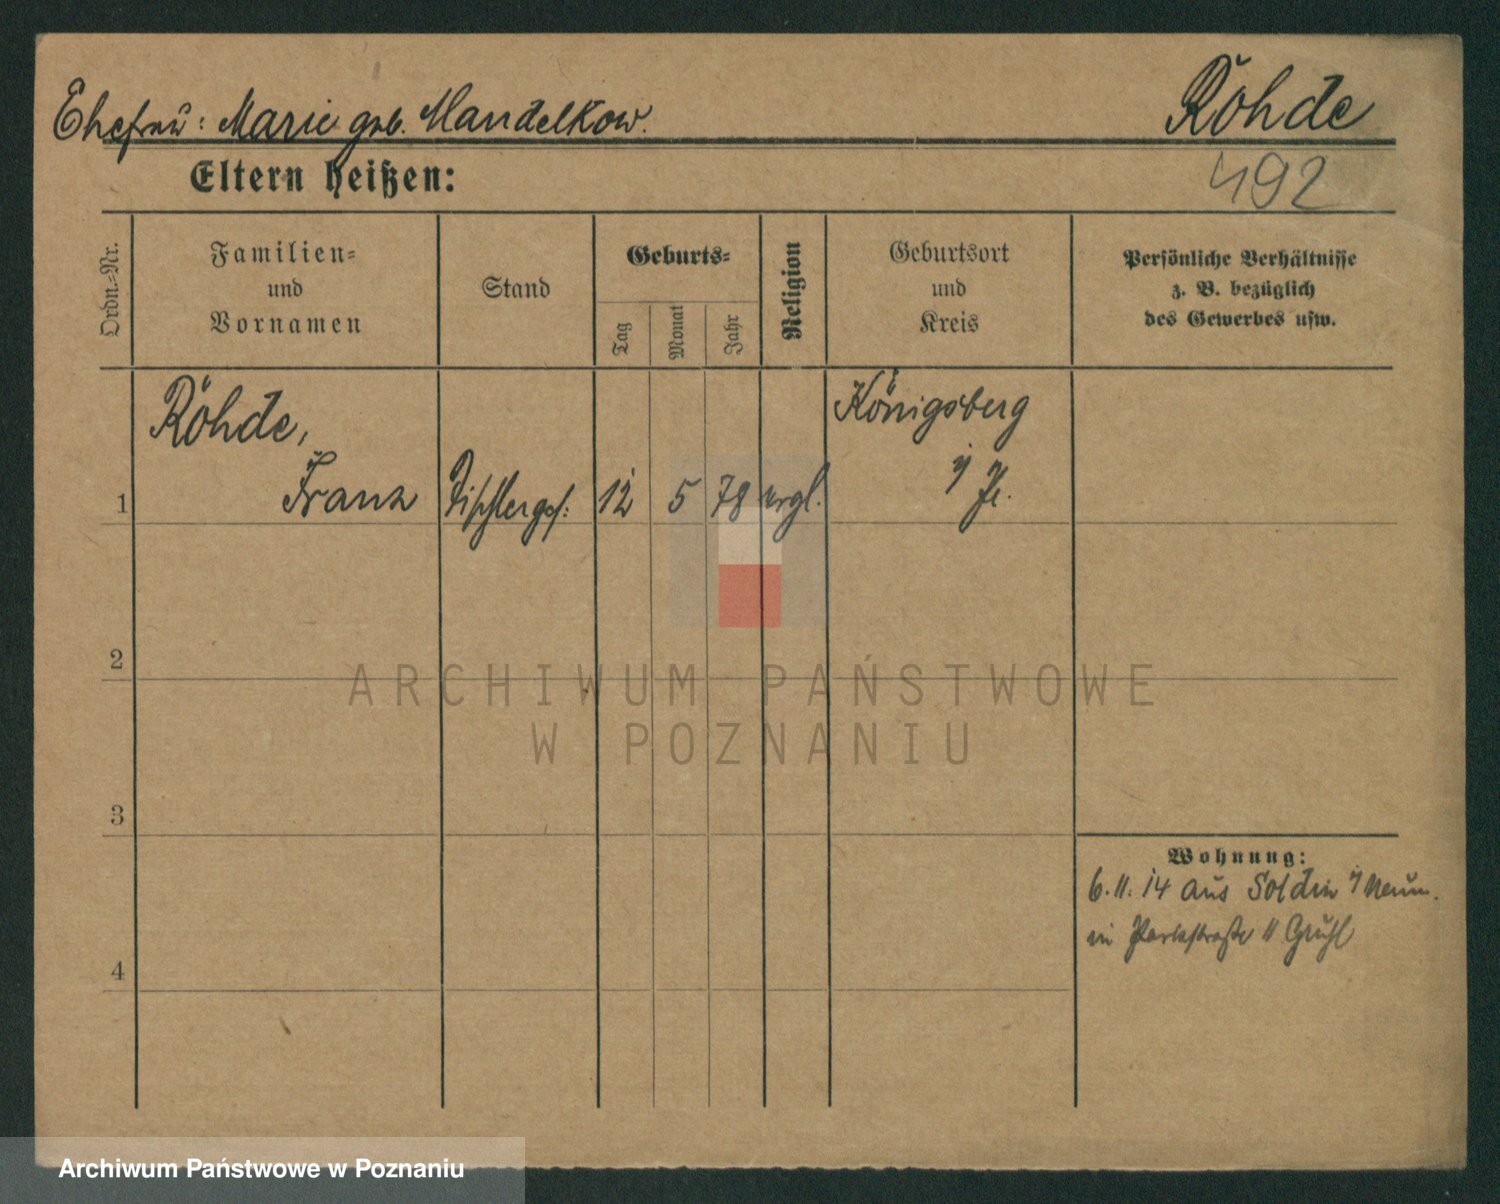 Ehefrau: Marie geb. Mandelkow.
Röhde
492
Eltern heißen:
Ordn.-Nr.
Familien-
und
Vornamen
Stand
Geburts-
Tag
Monat
Jahr
Religion
Geburtsort
und
Kreis
Persönliche Verhältnisse
z. B. bezüglich
des Gewerbes usw.
Röhde,
Königsberg
1 Franz Tischlerges. 12 5 78 evgl. i/ Pr.
2
ARCHIWUM PAŃSTWOWE
W POZNANIU
3
Wohnung:
6.11.14 aus Soldin i/ Neum.
in Parkstraße 11 Gruhl
4
Archiwum Państwowe w Poznaniu